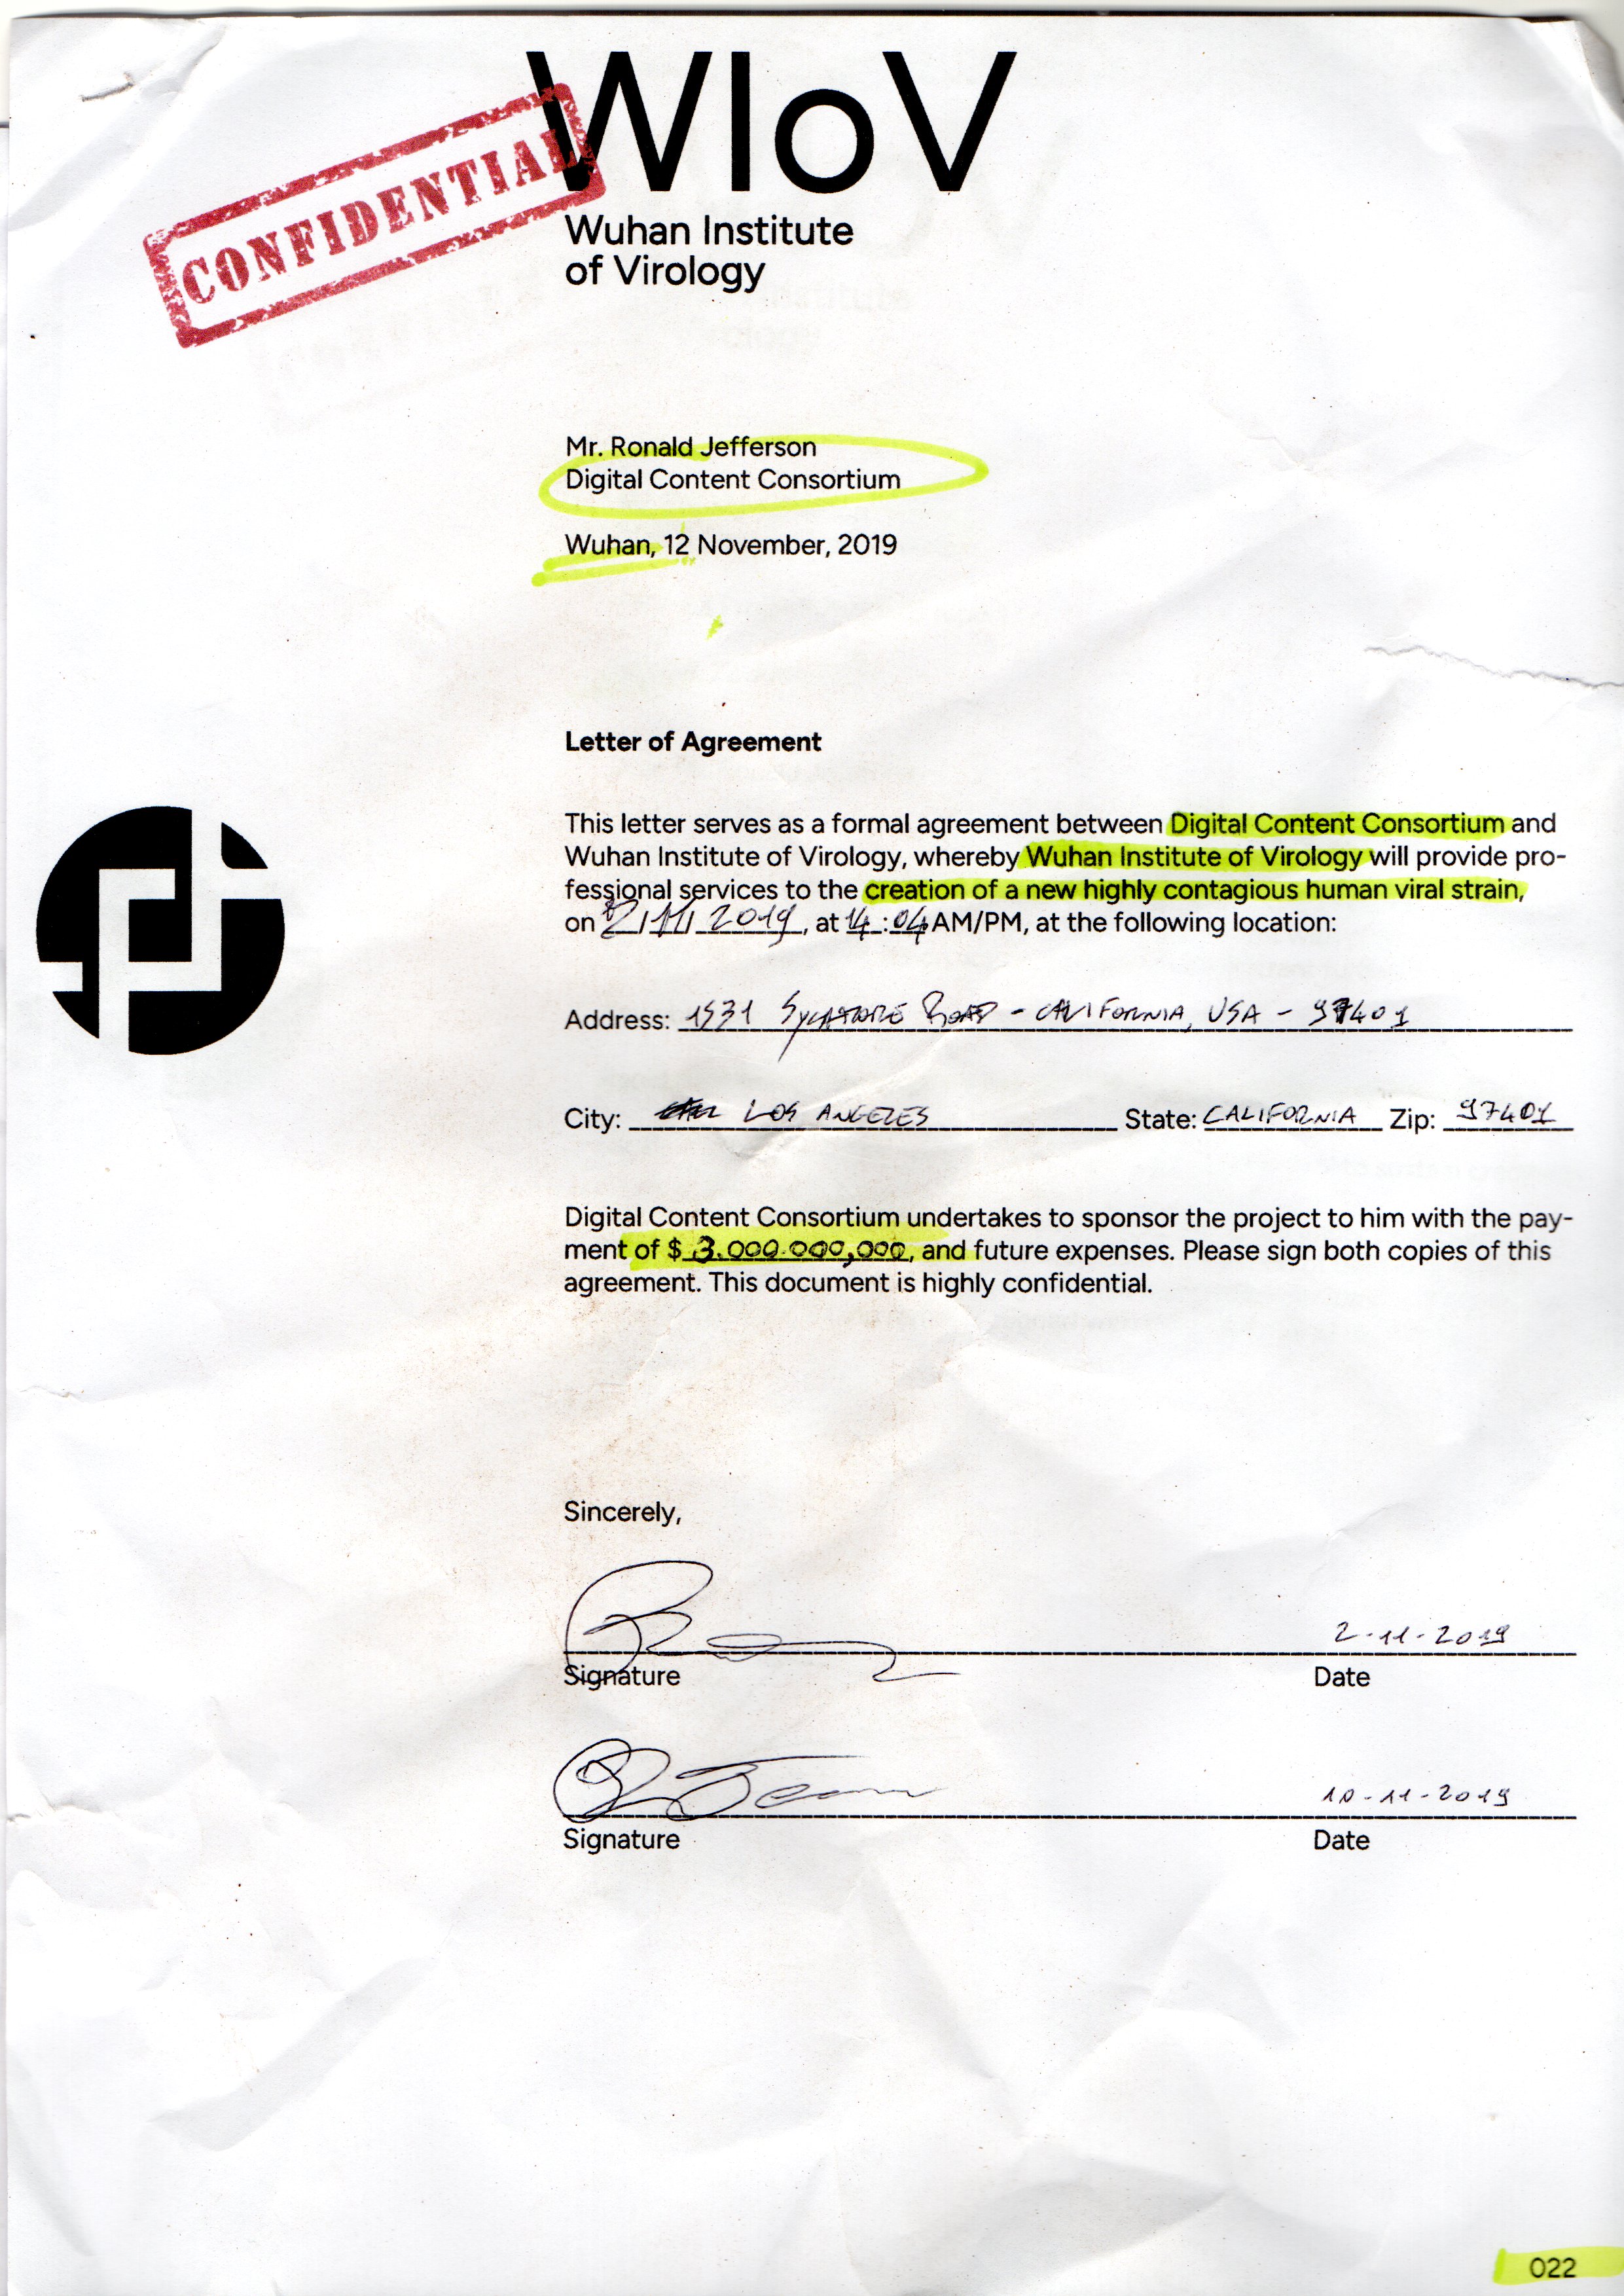 WIoV
CONFIDENTIAL
Wuhan Institute
of Virology
Mr. Ronald Jefferson
Digital Content Consortium
Wuhan, 12 November, 2019
Letter of Agreement
This letter serves as a formal agreement between Digital Content Consortium and
Wuhan Institute of Virology, whereby Wuhan Institute of Virology will provide pro-
fessional services to the creation of a new highly contagious human viral strain,
on 2/11/2019, at 14:04 AM/PM, at the following location:
Address: 1531 SYCAMORE ROAD - CALIFORNIA, USA - 97401
City: LOS ANGELES State: CALIFORNIA Zip: 97401
Digital Content Consortium undertakes to sponsor the project to him with the pay-
ment of $ 3.000.000,000, and future expenses. Please sign both copies of this
agreement. This document is highly confidential.
Sincerely,
2-11-2019
Signature Date
10-11-2019
Signature Date
022